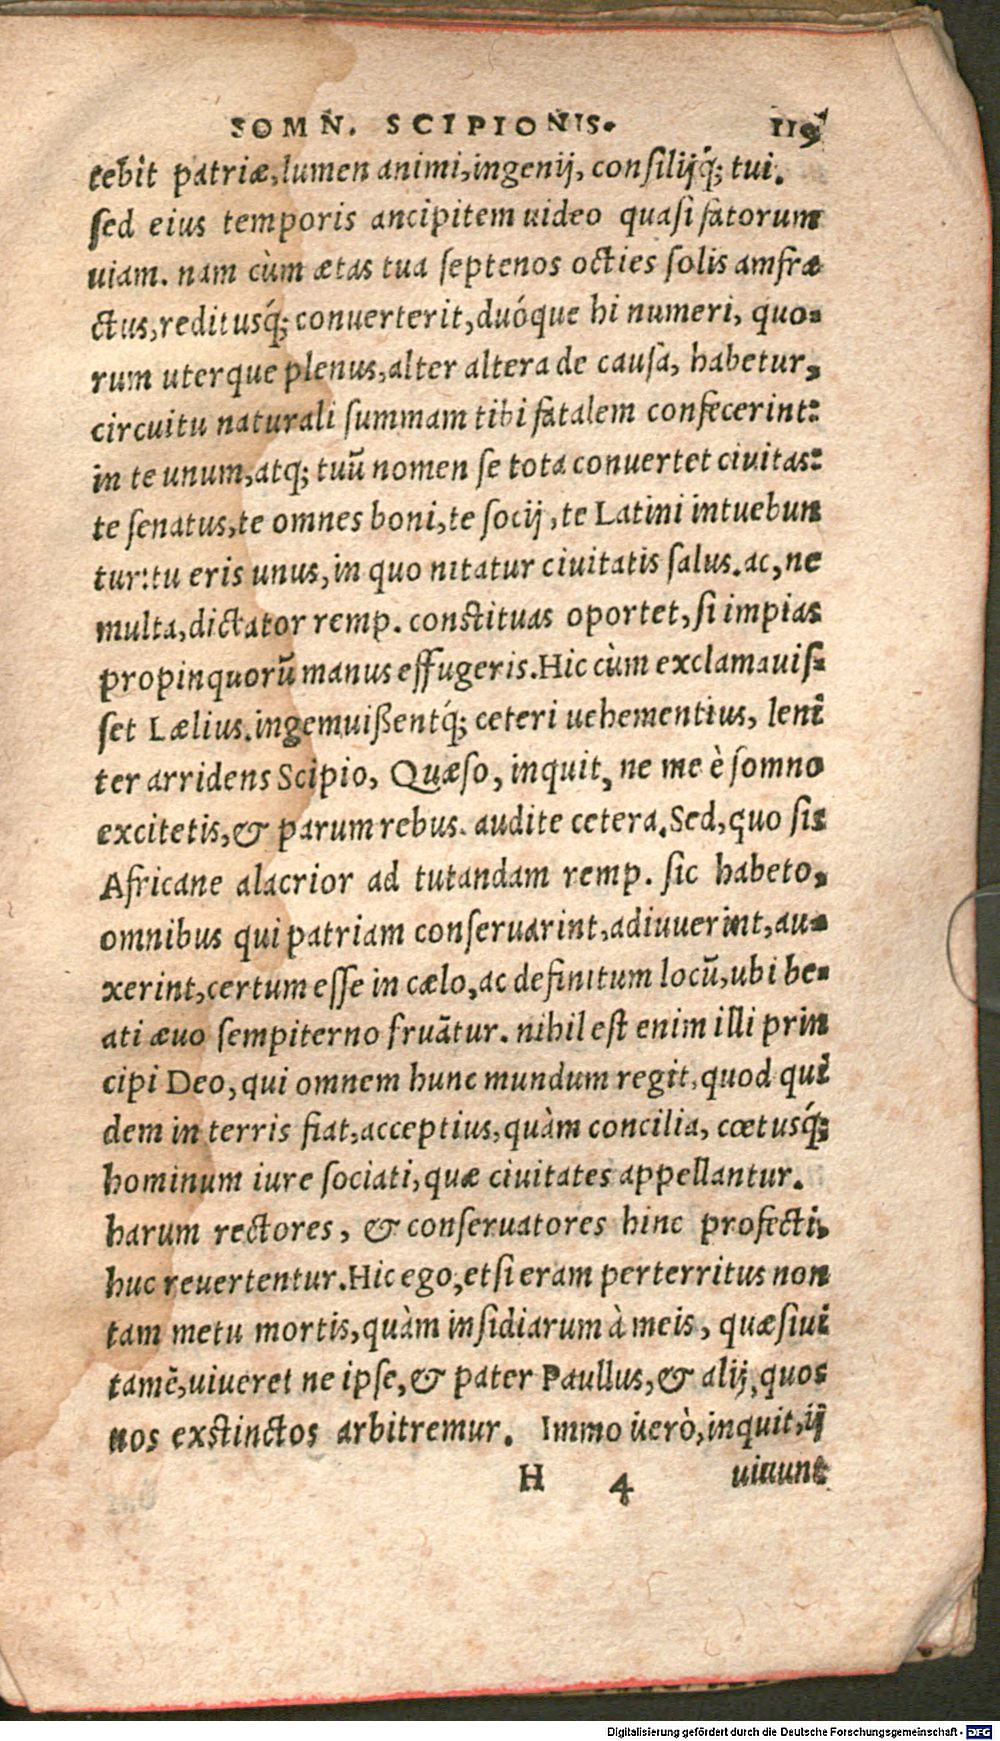 SOMN. SCIPIONIS. 119
tebit patriæ, lumen animi, ingenij, consilijq́; tui.
sed eius temporis ancipitem uideo quasi fatorum
uiam. nam cùm ætas tua septenos octies solis amfra
ctus, reditusq́; conuerterit, duóque hi numeri, quo-
rum uterque plenus, alter altera de causa, habetur,
circuitu naturali summam tibi fatalem confecerint:
in te unum, atq; tuū nomen se tota conuertet ciuitas:
te senatus, te omnes boni, te socij, te Latini intuebun
tur: tu eris unus, in quo nitatur ciuitatis salus. ac, ne
multa, dictator remp. constituas oportet, si impias
propinquorū manus effugeris. Hic cùm exclamauis-
set Lælius, ingemuißentq́; ceteri uehementius, leni
ter arridens Scipio, Quæso, inquit, ne me è somno
excitetis, & parum rebus. audite cetera. Sed, quo sis
Africane alacrior ad tutandam remp. sic habeto,
omnibus qui patriam conseruarint, adiuuerint, au-
xerint, certum esse in cælo, ac definitum locū, ubi be-
ati æuo sempiterno fruātur. nihil est enim illi prin
cipi Deo, qui omnem hunc mundum regit, quod qui
dem in terris fiat, acceptius, quàm concilia, cœtusq́;
hominum iure sociati, quæ ciuitates appellantur.
harum rectores, & conseruatores hinc profecti,
huc reuertentur. Hic ego, etsi eram perterritus non
tam metu mortis, quàm insidiarum à meis, quæsiui
tamē, uiueret ne ipse, & pater Paullus, & alij, quos
nos exstinctos arbitremur. Immo uerò, inquit, ij
H 4 uiuunt
Digitalisierung gefördert durch die Deutsche Forschungsgemeinschaft - DFG